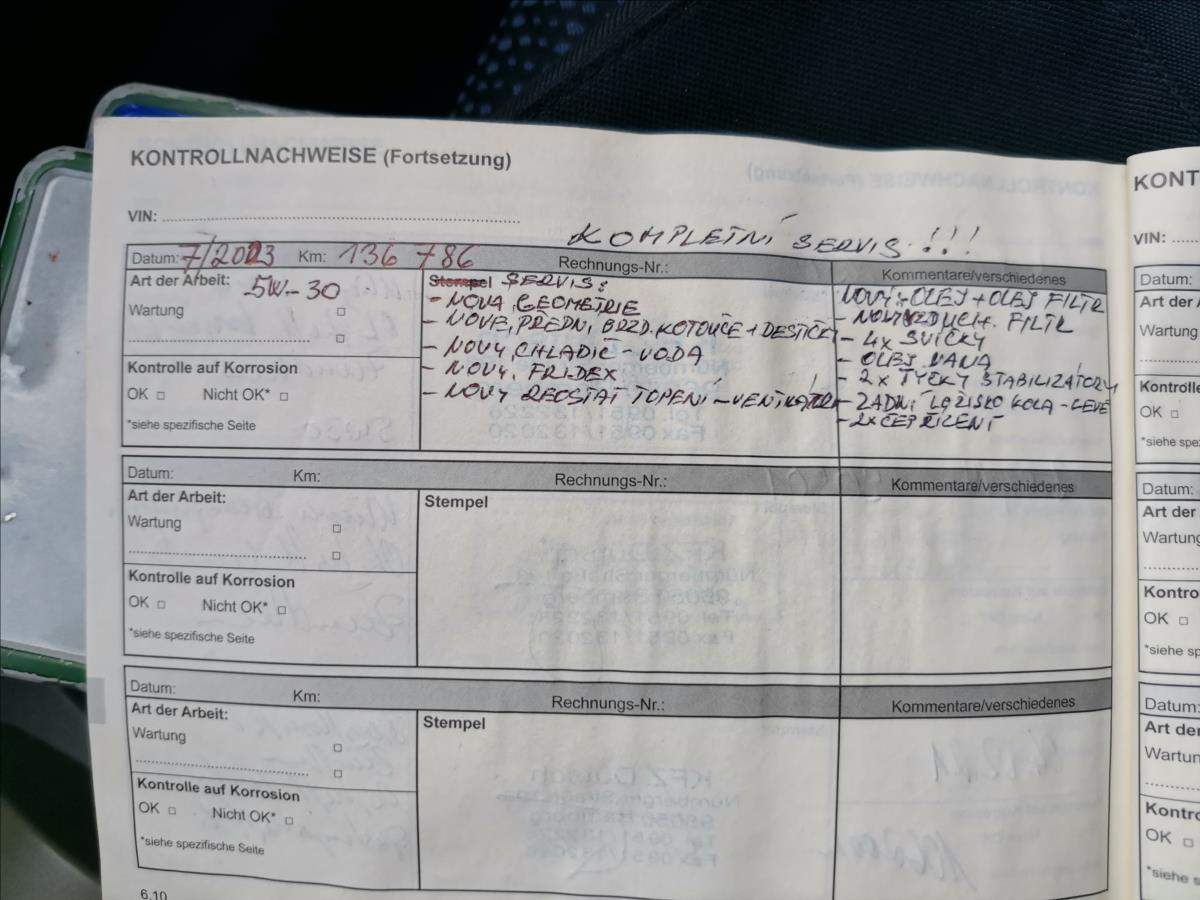 KONTROLLNACHWEISE (Fortsetzung)
VIN:
KOMPLETNÍ SERVIS!!!
Datum: 7/2023 Km: 136 786 Rechnungs-Nr.: Kommentare/verschiedenes
Art der Arbeit: 5W-30
Wartung
Kontrolle auf Korrosion
OK Nicht OK*
*siehe spezifische Seite
Stempel SERVIS:
- NOVÁ GEOMETRIE
- NOVÉ, PŘEDNÍ, BRZD. KOTOUČE + DESTIČKY
- NOVÝ, CHLADIČ - VODA
- NOVÝ, FRIDEX
- NOVÝ REOSTAT TOPENÍ - VENTILÁTOR
NOVÝ - OLEJ + OLEJ FILTR
- NOVÝ VZDUCH. FILTR
- 4x SVÍČKY
- OLEJ. VANA
- 2x TYČKY STABILIZÁTORU
- ZADNÍ LOŽISKO KOLA - LEVÉ
- 2x ČEP ŘÍZENÍ
Datum: Km: Rechnungs-Nr.: Kommentare/verschiedenes
Art der Arbeit:
Wartung
Kontrolle auf Korrosion
OK Nicht OK*
*siehe spezifische Seite
Stempel
Datum: Km: Rechnungs-Nr.: Kommentare/verschiedenes
Art der Arbeit:
Wartung
Kontrolle auf Korrosion
OK Nicht OK*
*siehe spezifische Seite
Stempel
6.10
KONT
VIN:
Datum:
Art der
Wartung
Kontrolle
OK
*siehe spez
Datum:
Art der
Wartung
Kontro
OK
*siehe sp
Datum:
Art der
Wartun
Kontro
OK
*siehe